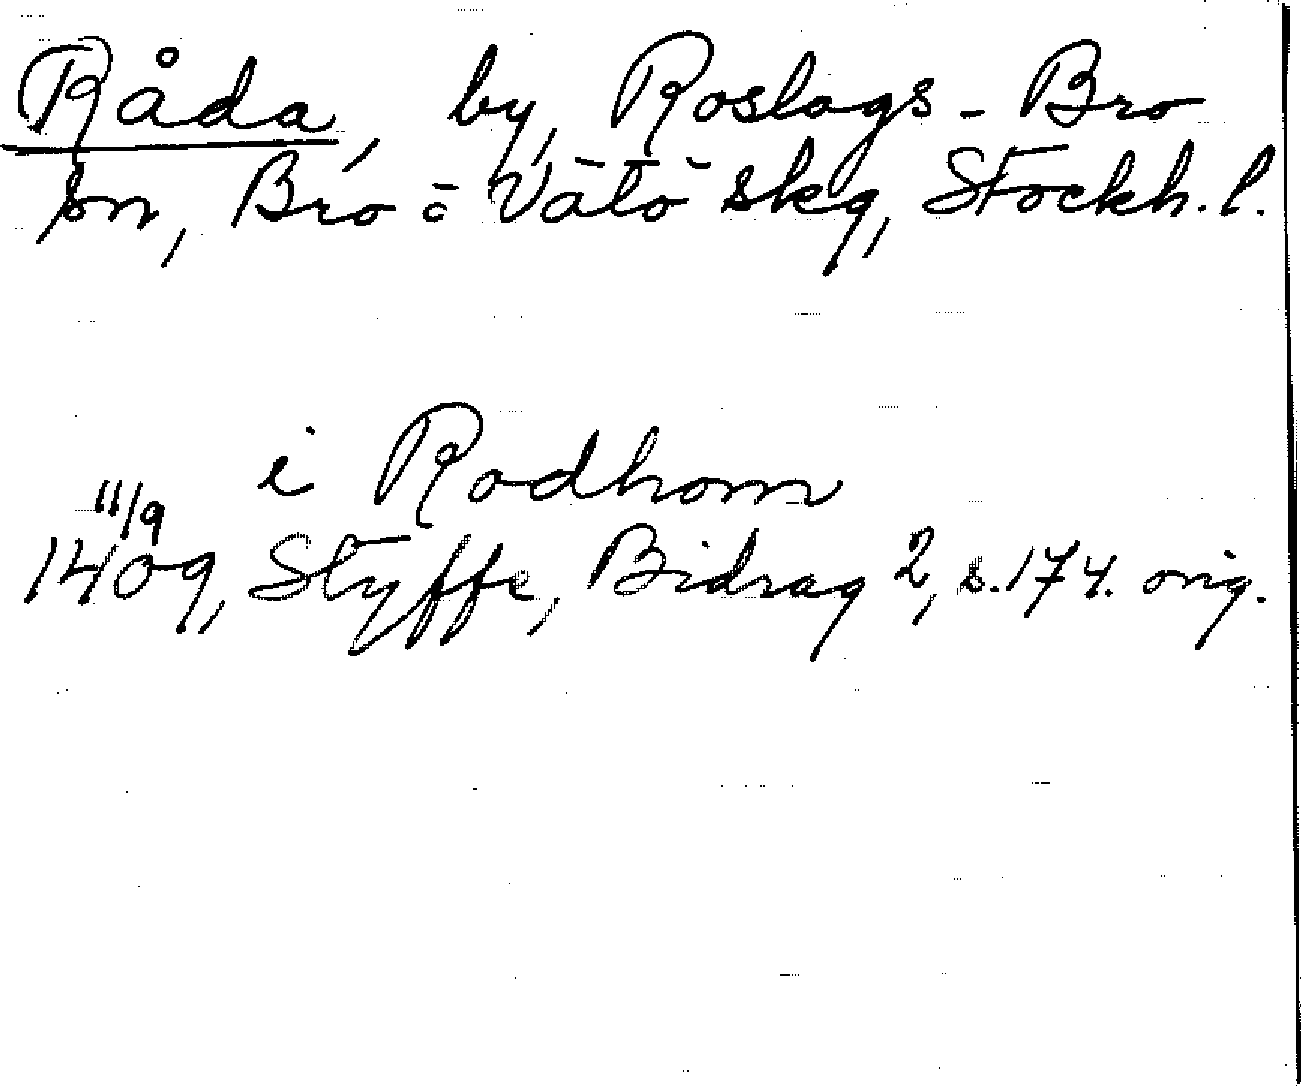 Råda, by, Roslags-Bro
sn, Bro o Vätö skg, Stockh. l.
i Rodhom
11/9
1409, Styffe, Bidrag 2, s. 174. orig.